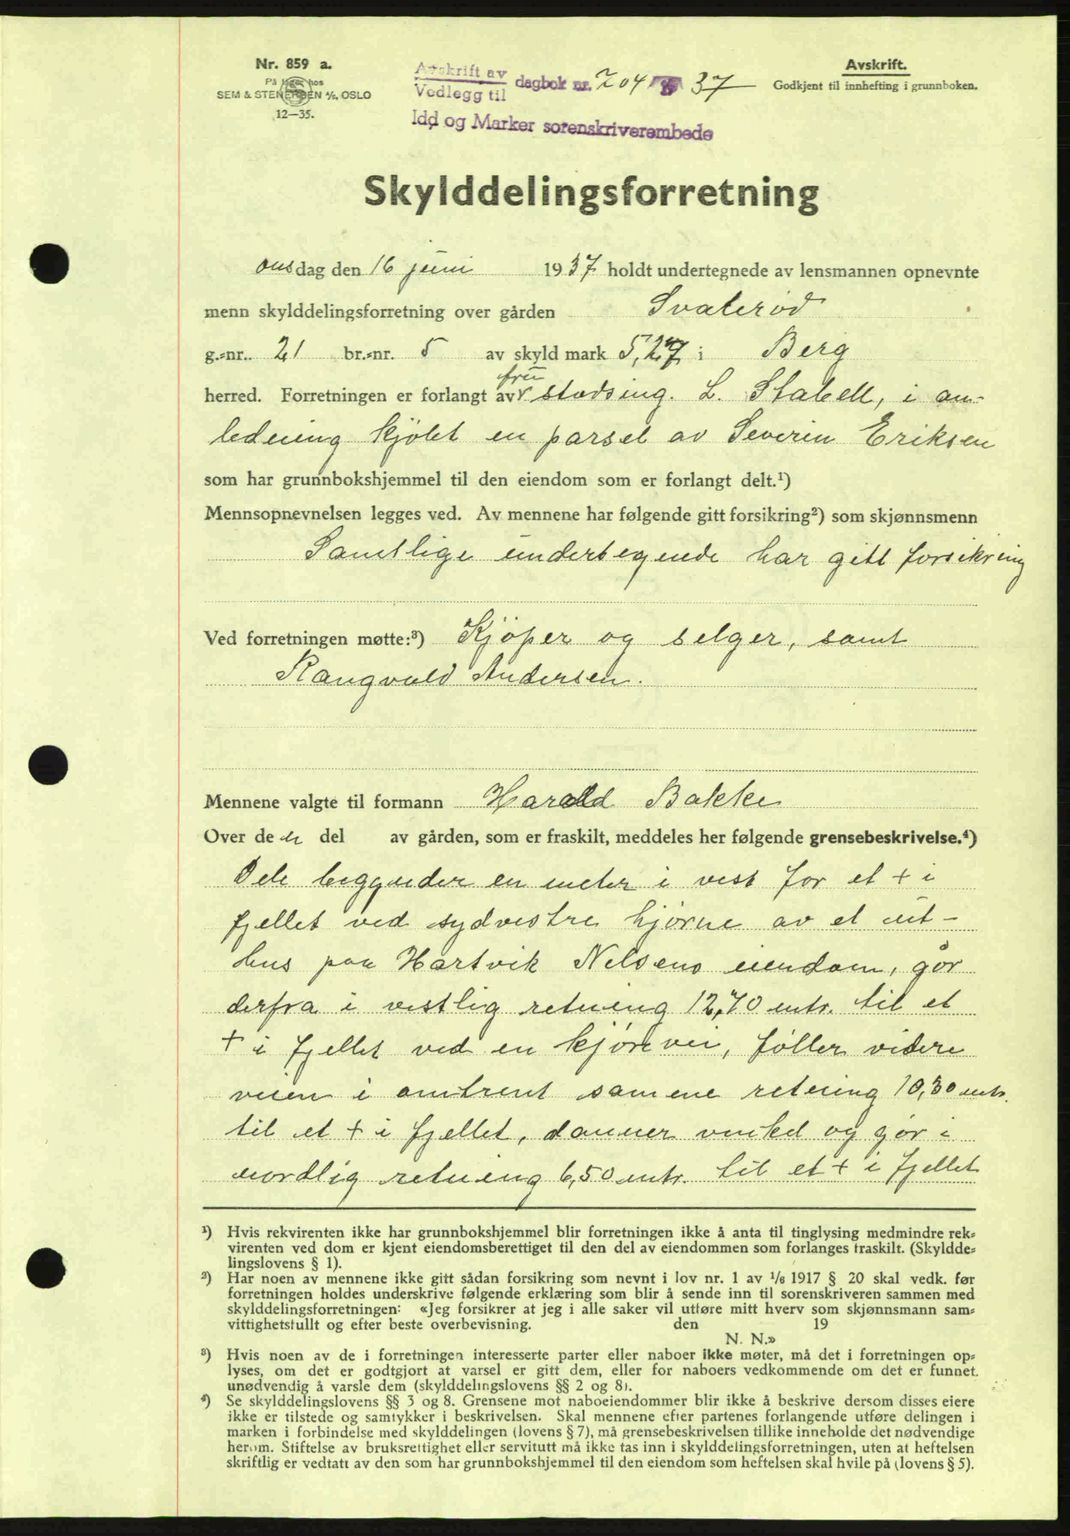 Nr. 859 a.
På lager hos
SEM & STENERSEN A/S, OSLO
12—35.
Avskrift av
Vedlegg til
dagbok nr. 704 37
Idd og Marker sorenskriverembede
Avskrift.
Godkjent til innhefting i grunnboken.
Skylddelingsforretning
onsdag den 16 juni 1937 holdt undertegnede av lensmannen opnevnte
menn skylddelingsforretning over gården Svalerød
g.-nr. 21 br.-nr. 5 av skyld mark 5,27 i Berg
herred. Forretningen er forlangt av fru stadsing. L. Stabell, i an-
ledning kjøbt en parsel av Severin Eriksen
som har grunnbokshjemmel til den eiendom som er forlangt delt.¹)
Mennsopnevnelsen legges ved. Av mennene har følgende gitt forsikring²) som skjønnsmenn
Samtlige undertegnede har gitt forsikring
Ved forretningen møtte:³) Kjöper og selger, samt
Rangvald Andersen.
Mennene valgte til formann Harald Bakke
Over den del av gården, som er fraskilt, meddeles her følgende grensebeskrivelse.⁴)
Dele begynder en meter i vest for et + i
fjellet ved sydvestre hjørne av et ut-
hus paa Hartvik Nelsens eiendom, går
derfra i vestlig retning 12,70 mtr. til et
+ i fjellet ved en kjørevei, føller videre
veien i omtrent samme retning 10,30 mtr.
til et + i fjellet, danner vinkel og går i
nordlig retning 6,50 mtr. til et + i fjellet
¹) Hvis rekvirenten ikke har grunnbokshjemmel blir forretningen ikke å anta til tinglysing medmindre rek-
virenten ved dom er kjent eiendomsberettiget til den del av eiendommen som forlanges fraskilt. (Skyldde-
lingslovens § 1).
²) Har noen av mennene ikke gitt sådan forsikring som nevnt i lov nr. 1 av 1/6 1917 § 20 skal vedk. før
forretningen holdes underskrive følgende erklæring som blir å sende inn til sorenskriveren sammen med
skylddelingsforretningen: «Jeg forsikrer at jeg i alle saker vil utføre mitt hverv som skjønnsmann sam-
vittighetsfullt og efter beste overbevisning. den 19
N. N.»
³) Hvis noen av de i forretningen interesserte parter eller naboer ikke møter, må det i forretningen op-
lyses, om det er godtgjort at varsel er gitt dem, eller for naboers vedkommende om det er funnet
unødvendig å varsle dem (skylddelingslovens §§ 2 og 8).
⁴) Se skylddelingslovens §§ 3 og 8. Grensene mot naboeiendommer blir ikke å beskrive dersom disses eiere
ikke er tilstede og samtykker i beskrivelsen. Skal mennene efter partenes forlangende utføre delingen i
marken i forbindelse med skylddelingen (lovens § 7), må grensebeskrivelsen tillike inneholde det nødvendige
herom. Stiftelse av bruksrettighet eller servitutt må ikke tas inn i skylddelingsforretningen, uten at heftelsen
skriftlig er vedtatt av den som har grunnbokshjemmel til den eiendom som heftelsen skal hvile på (lovens § 5).